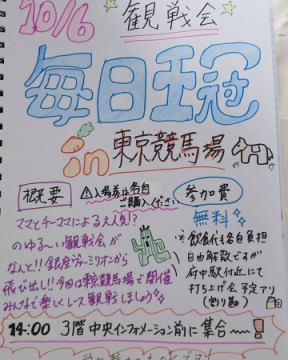 10/6 観戦会
毎日王冠
in 東京競馬場
概要
⚠入場券は各自
ご購入ください
参加費
無料
ママとチーママによる大人気!?
のゆる〜い観戦会が
なんと!!銀座ヴァーミリオンから
飛び出し!!今回は東京競馬場で開催
みんなで楽しくして観戦しましょう
※飲食代は各自負担
自由解散ですが
府中駅付近にて
打ち上げ会予定アリ
(割り勘)
14:00 3階中央インフォメーション前に集合〜!